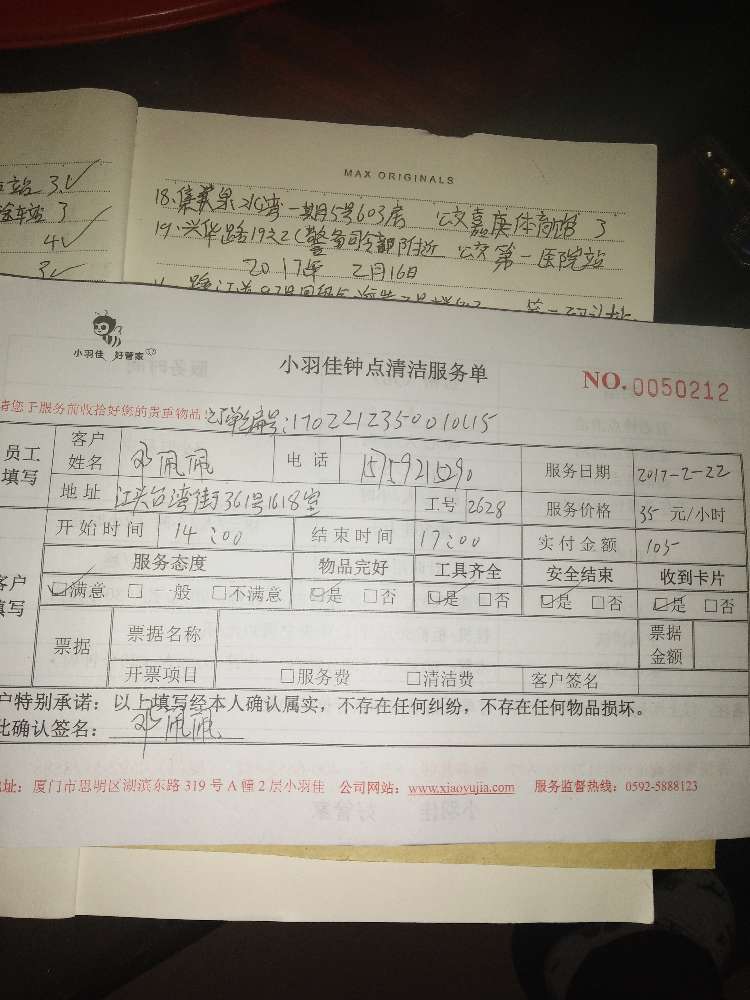 MAX ORIGINALS
站 3.✓
车站 3
4✓
3✓
18、集美泉水湾一期5号603房 公交嘉庚体育馆 3
19、兴华路19之2(警备司令部附近 公交第一医院站
2017年 2月16日
小羽佳 好管家
小羽佳钟点清洁服务单
NO. 0050212
请您于服务前收拾好您的贵重物品! 订单编号:1702212350010415
员工填写 客户姓名 邓佩佩 电话 15759215290 服务日期 2017-2-22
地址 江头台湾街361号1618室 工号 2628 服务价格 35 元/小时
开始时间 14:00 结束时间 17:00 实付金额 105
客户填写 服务态度 物品完好 工具齐全 安全结束 收到卡片
☑满意 □一般 □不满意 ☑是 □否 ☑是 □否 ☑是 □否 ☑是 □否
票据 票据名称 票据金额
开票项目 □服务费 □清洁费 客户签名
户特别承诺:以上填写经本人确认属实,不存在任何纠纷,不存在任何物品损坏。
此确认签名:邓佩佩
地址:厦门市思明区湖滨东路 319 号 A 幢 2 层小羽佳 公司网站:www.xiaoyujia.com 服务监督热线:0592-5888123